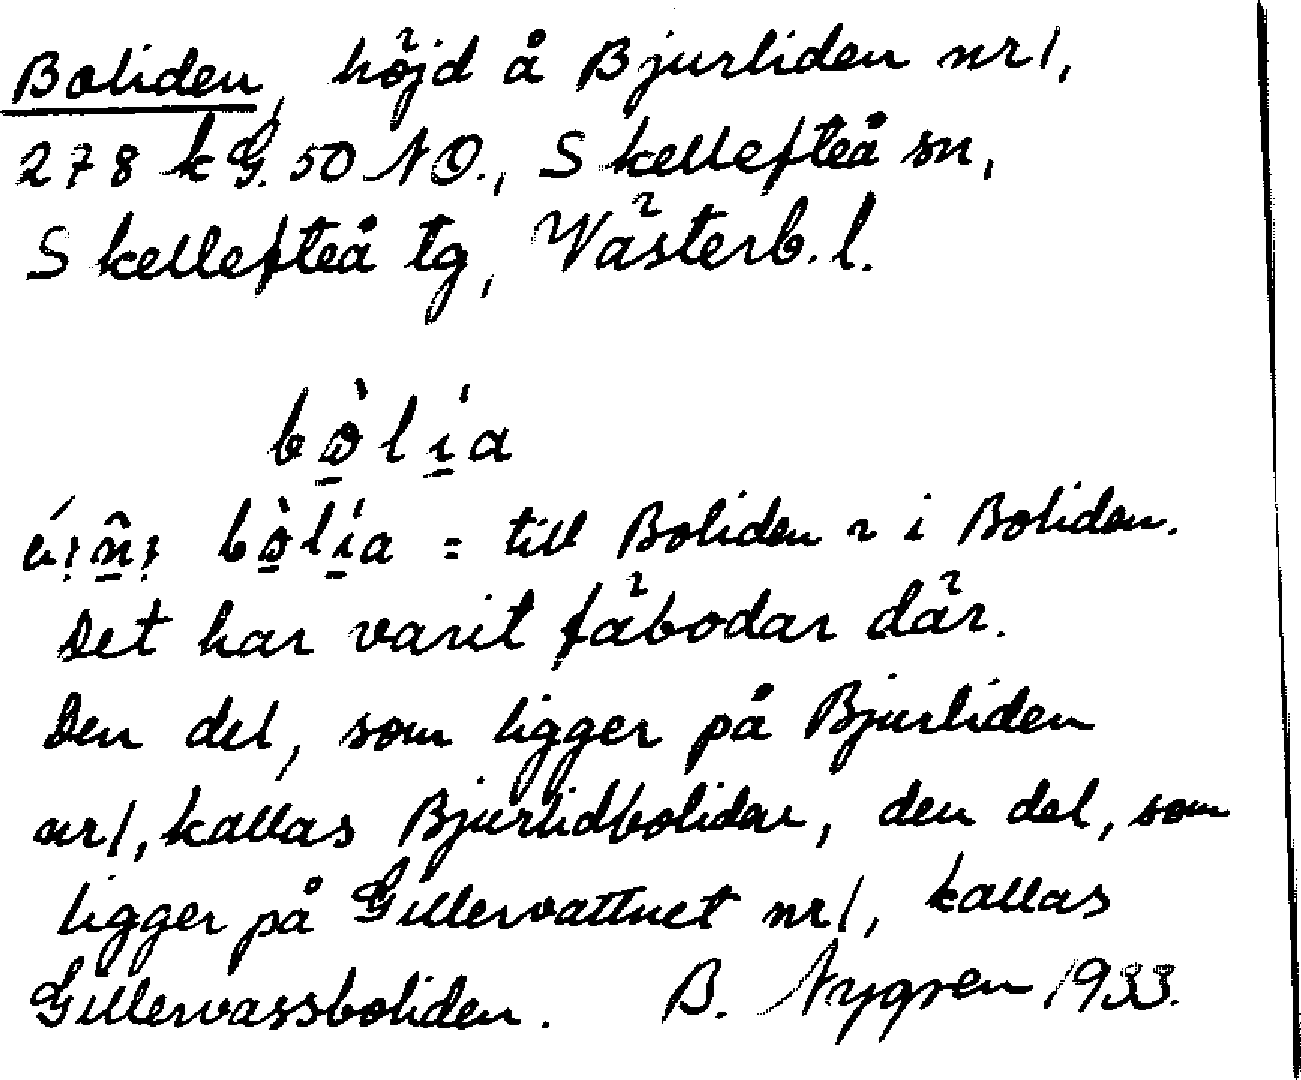 Boliden, höjd å Bjurliden nr 1,
278 kG. 50 NO., Skellefteå sn,
Skellefteå tg, Västerb. l.
bò̠lı̠́a
bò̠lı̠́a = till Boliden ~ i Boliden.
Det har varit fäbodar där.
Den del, som ligger på Bjurliden
nr 1, kallas Bjurlidboliden, den del, som
ligger på Gillervattnet nr 1, kallas
Gillervassboliden. B. Nygren 1933.